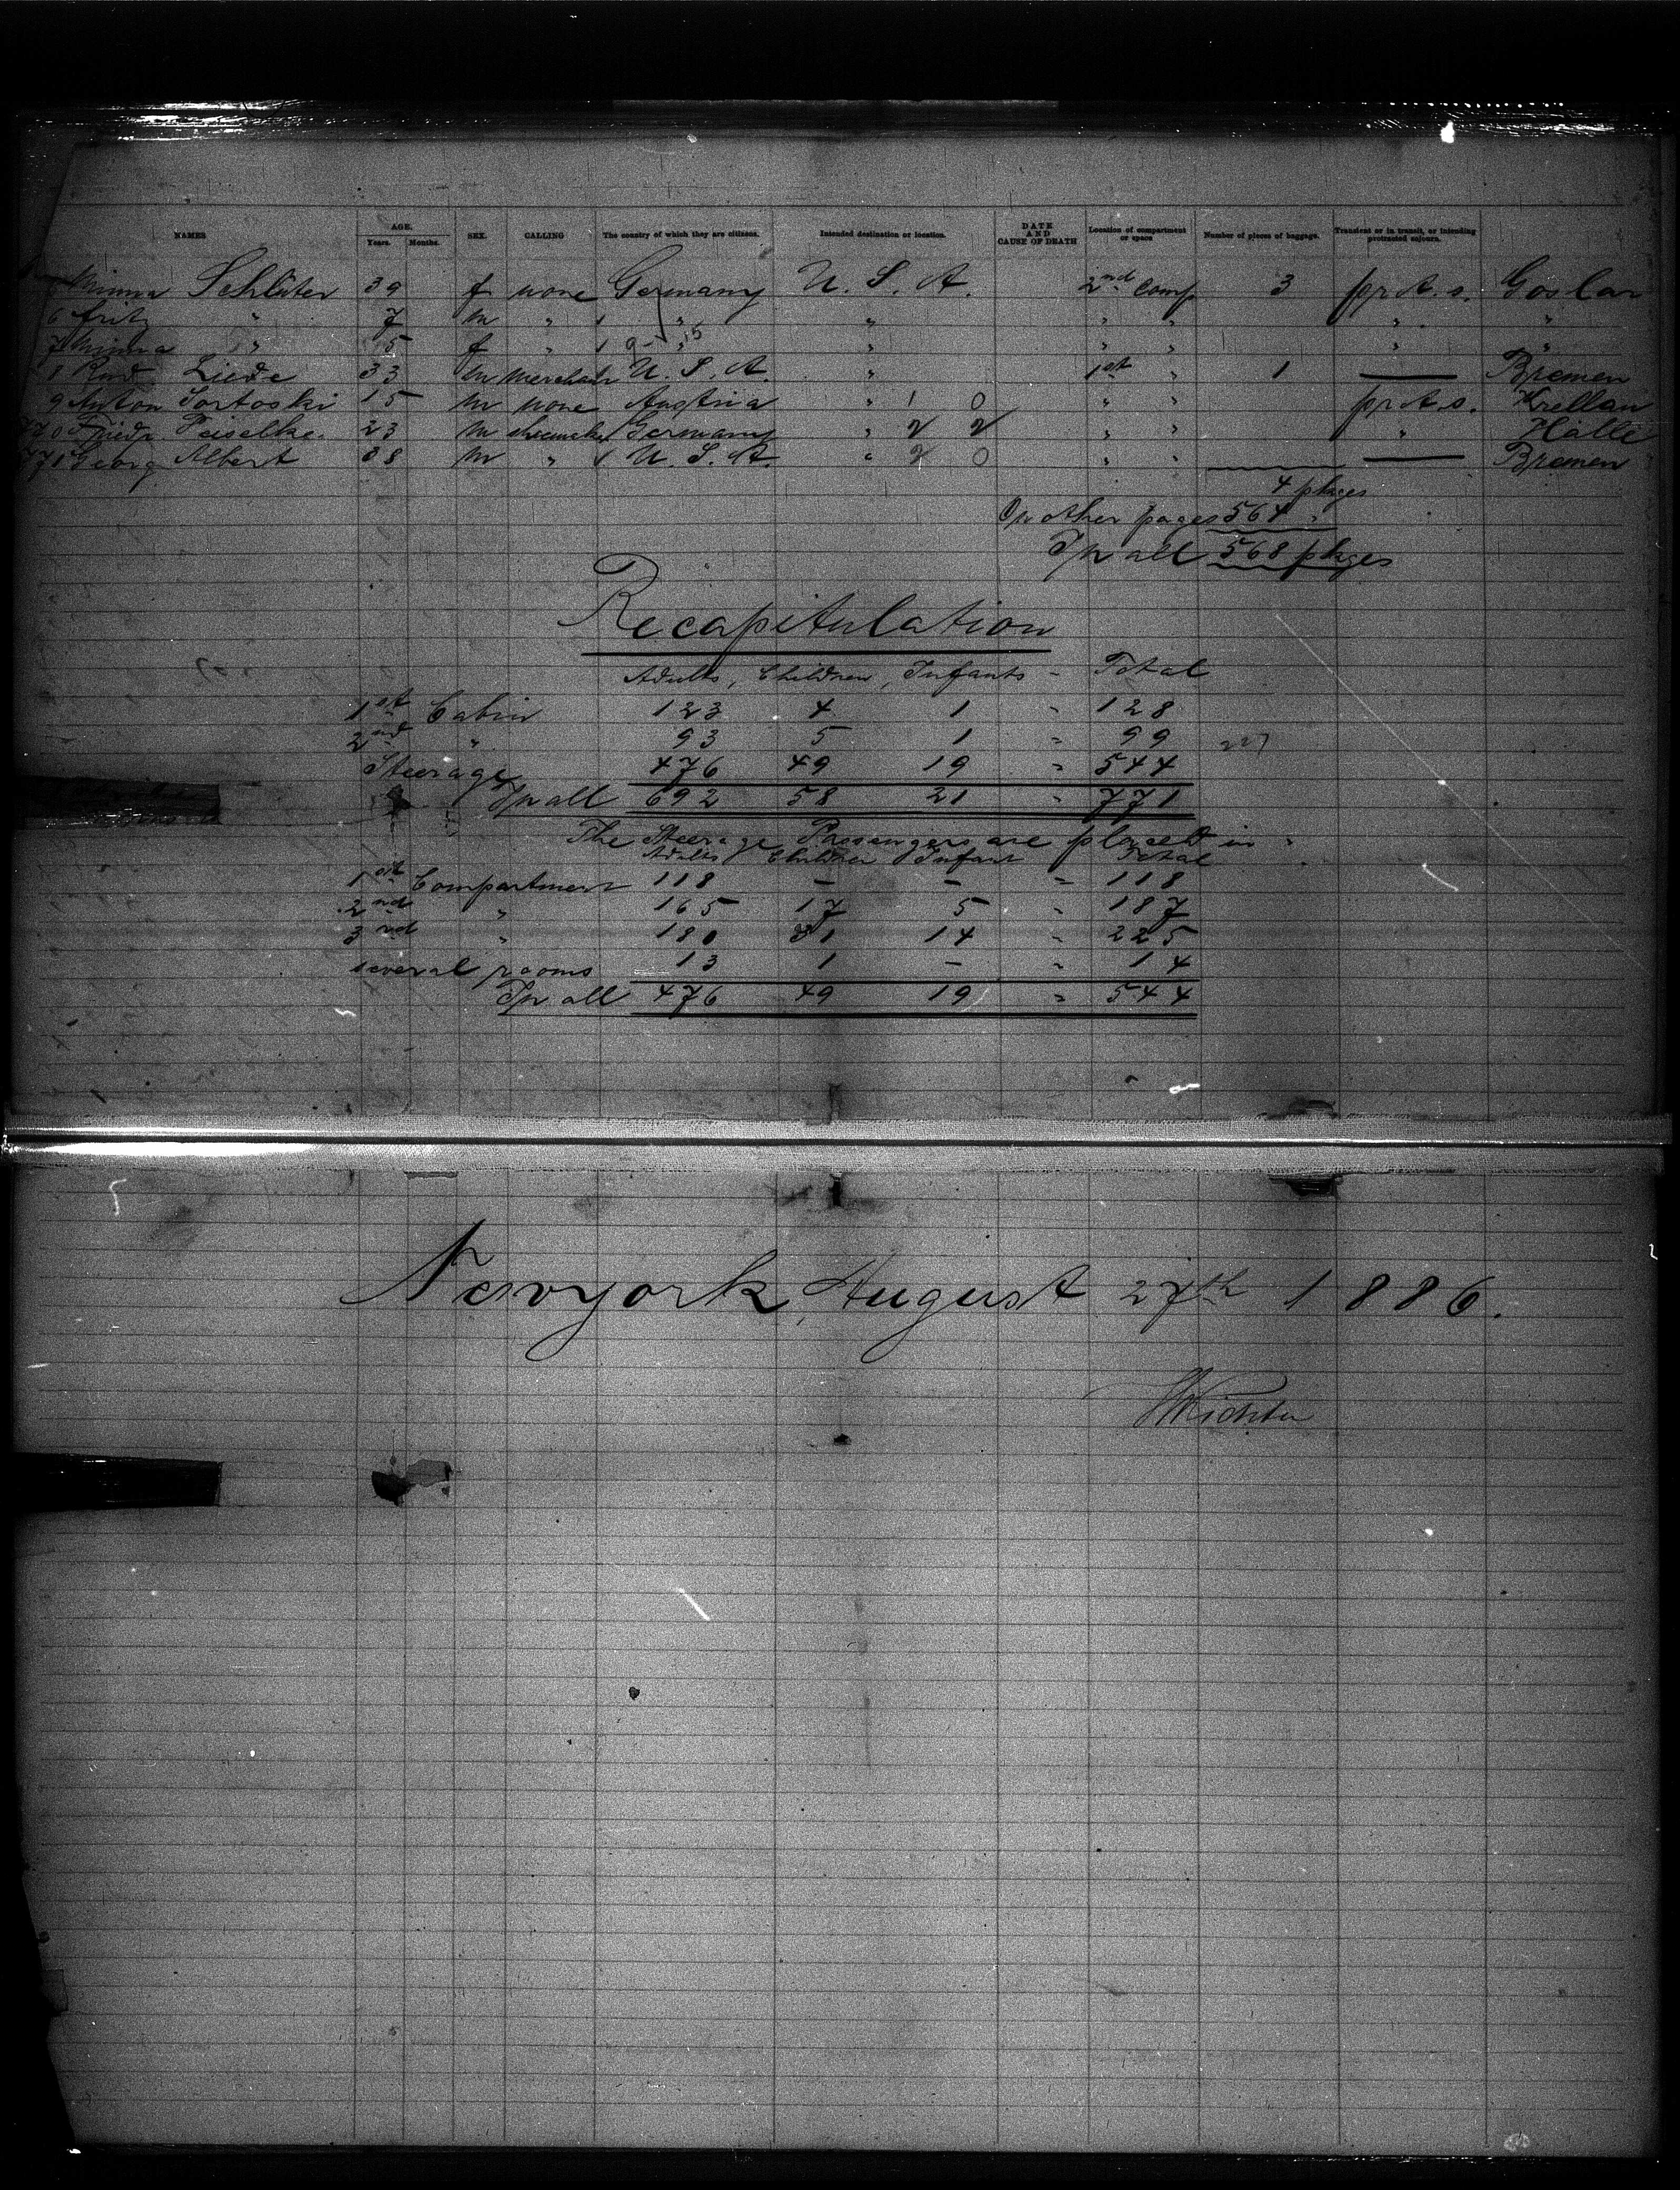 NAMES AGE. Years. Months. SEX. CALLING The country of which they are citizens. Intended destination or location. DATE AND CAUSE OF DEATH Location of compartment or space Number of pieces of baggage. Transient or in transit, or intending protracted sojourn.
Minna Schlüter 39 f none Germany U. S. A. 2nd Comp 3 pr A. s. Goslar
6 Fritz " 7 m " " " " " " "
7 Minna " 5 f " " " " " " "
8 Rud. Liede 33 m merchant U. S. A. " 1st " 1 — Bremen
9 Anton 15 m none Austria " 1 0 " " pr A. s.
770 Friedr. 23 m shoemaker Germany " 2 2 " " " Halle
771 Georg Albert 38 m " U. S. A. " 2 0 " " — Bremen
4 pkges
On other pages 564 "
In all 568 pkges
Recapitulation
Adults, Children, Infants = Total
1st Cabin 123 4 1 = 128
2nd " 93 5 1 = 99 227
Steerage 476 49 19 = 544
In all 692 58 21 = 771
The Steerage Passengers are placed in:
Adults Children Infant Total
1st Compartment 118 — — = 118
2nd " 165 17 5 = 187
3rd " 180 31 14 = 225
several rooms 13 1 — = 14
In all 476 49 19 = 544
Newyork, August 27th 1886.
Richter